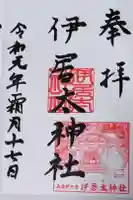 奉拝
伊居太神社
令和元年霜月十七日
伊居太神社